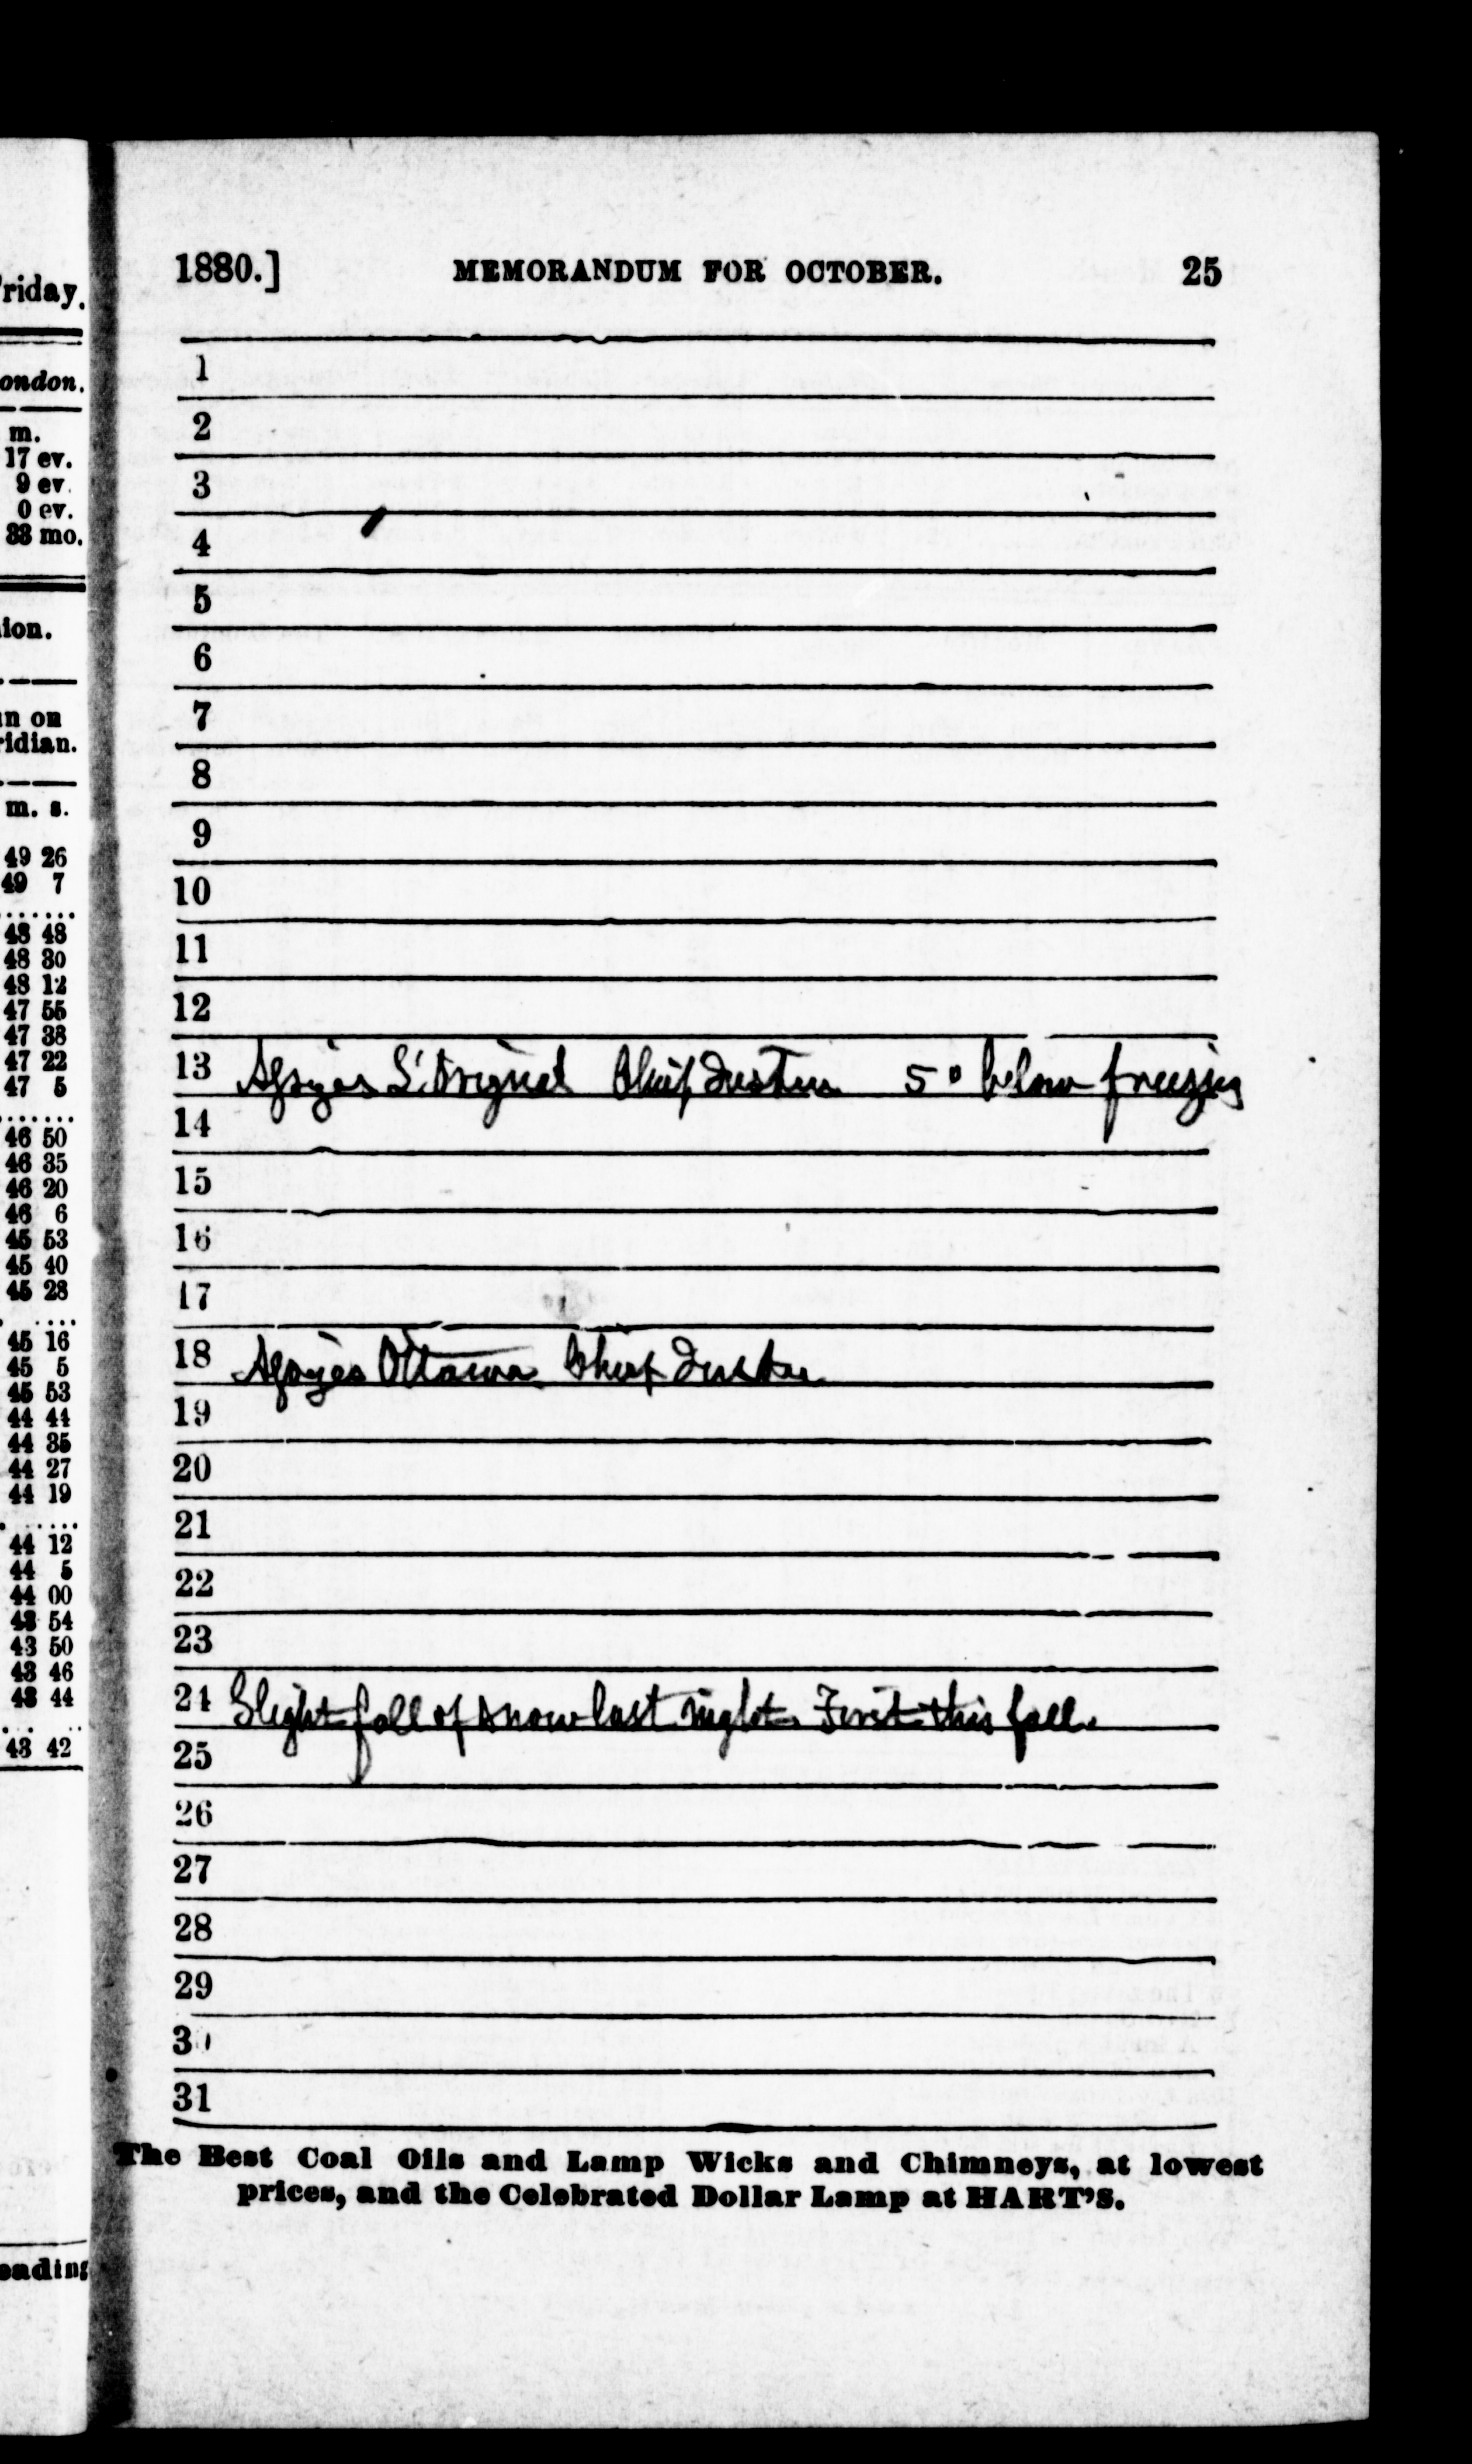 riday.
ondon.
m.
17 ev.
9 ev.
0 ev.
38 mo.
ion.
n on
ridian.
m. s.
49 26
49 7
.......
48 48
48 30
48 12
47 55
47 38
47 22
47 5
.......
46 50
46 35
46 20
46 6
45 53
45 40
45 28
45 16
45 5
45 53
44 44
44 35
44 27
44 19
44 12
44 5
44 00
43 54
43 50
43 46
43 44
43 42
eading
1880.] MEMORANDUM FOR OCTOBER. 25
1
2
3
4
5
6
7
8
9
10
11
12
13 Assizes L'Orignal Chief Justice 5° below freezing
14
15
16
17
18 Assizes Ottawa Chief Justice
19
20
21
22
23
24 Slight fall of snow last night. First this fall.
25
26
27
28
29
30
31
The Best Coal Oils and Lamp Wicks and Chimneys, at lowest
prices, and the Celebrated Dollar Lamp at HART'S.